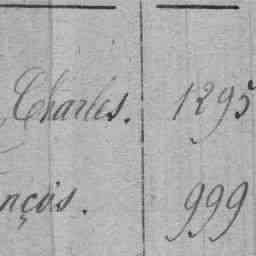 Charles. 1295
nçois. 999